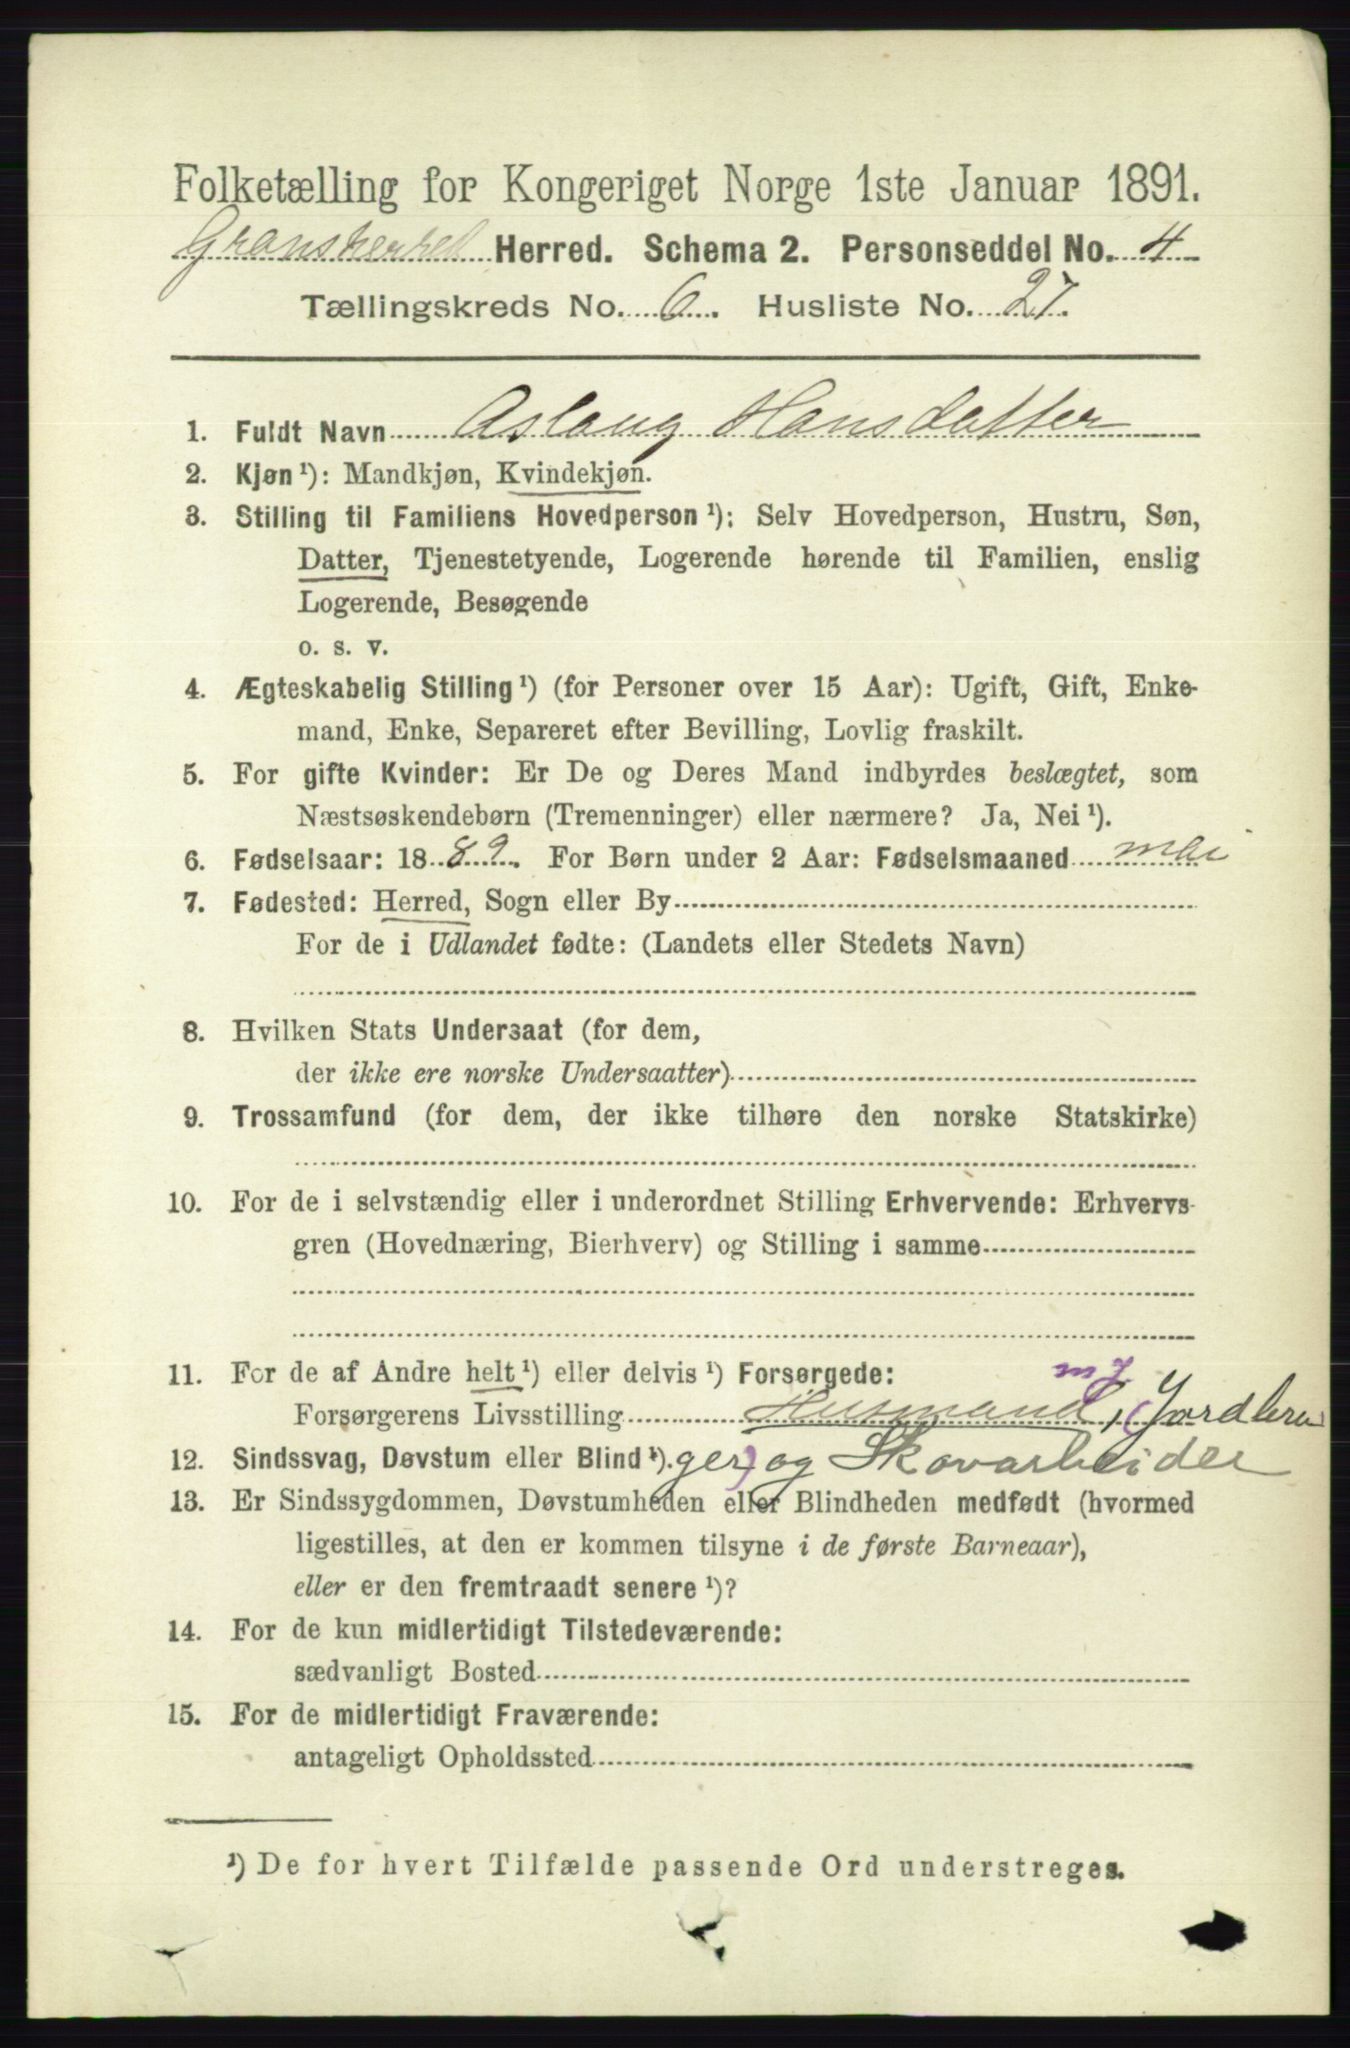 Folketælling for Kongeriget Norge 1ste Januar 1891.
Gransherred Herred. Schema 2. Personseddel No. 4
Tællingskreds No. 6. Husliste No. 27.
1. Fuldt Navn Aslaug Hansdatter
2. Kjøn ¹): Mandkjøn, Kvindekjøn.
3. Stilling til Familiens Hovedperson ¹): Selv Hovedperson, Hustru, Søn,
Datter, Tjenestetyende, Logerende hørende til Familien, enslig
Logerende, Besøgende
o. s. v.
4. Ægteskabelig Stilling ¹) (for Personer over 15 Aar): Ugift, Gift, Enke-
mand, Enke, Separeret efter Bevilling, Lovlig fraskilt.
5. For gifte Kvinder: Er De og Deres Mand indbyrdes beslægtet, som
Næstsøskendebørn (Tremenninger) eller nærmere? Ja, Nei ¹).
6. Fødselsaar: 1889. For Børn under 2 Aar: Fødselsmaaned mai
7. Fødested: Herred, Sogn eller By
For de i Udlandet fødte: (Landets eller Stedets Navn)
8. Hvilken Stats Undersaat (for dem,
der ikke ere norske Undersaatter)
9. Trossamfund (for dem, der ikke tilhøre den norske Statskirke)
10. For de i selvstændig eller i underordnet Stilling Erhvervende: Erhvervs-
gren (Hovednæring, Bierhverv) og Stilling i samme
11. For de af Andre helt ¹) eller delvis ¹) Forsørgede:
Forsørgerens Livsstilling Husmand, (Jordbru
12. Sindssvag, Døvstum eller Blind ¹). ger) og Skovarbeider
13. Er Sindssygdommen, Døvstumheden eller Blindheden medfødt (hvormed
ligestilles, at den er kommen tilsyne i de første Barneaar),
eller er den fremtraadt senere ¹)?
14. For de kun midlertidigt Tilstedeværende:
sædvanligt Bosted
15. For de midlertidigt Fraværende:
antageligt Opholdssted
¹) De for hvert Tilfælde passende Ord understreges.